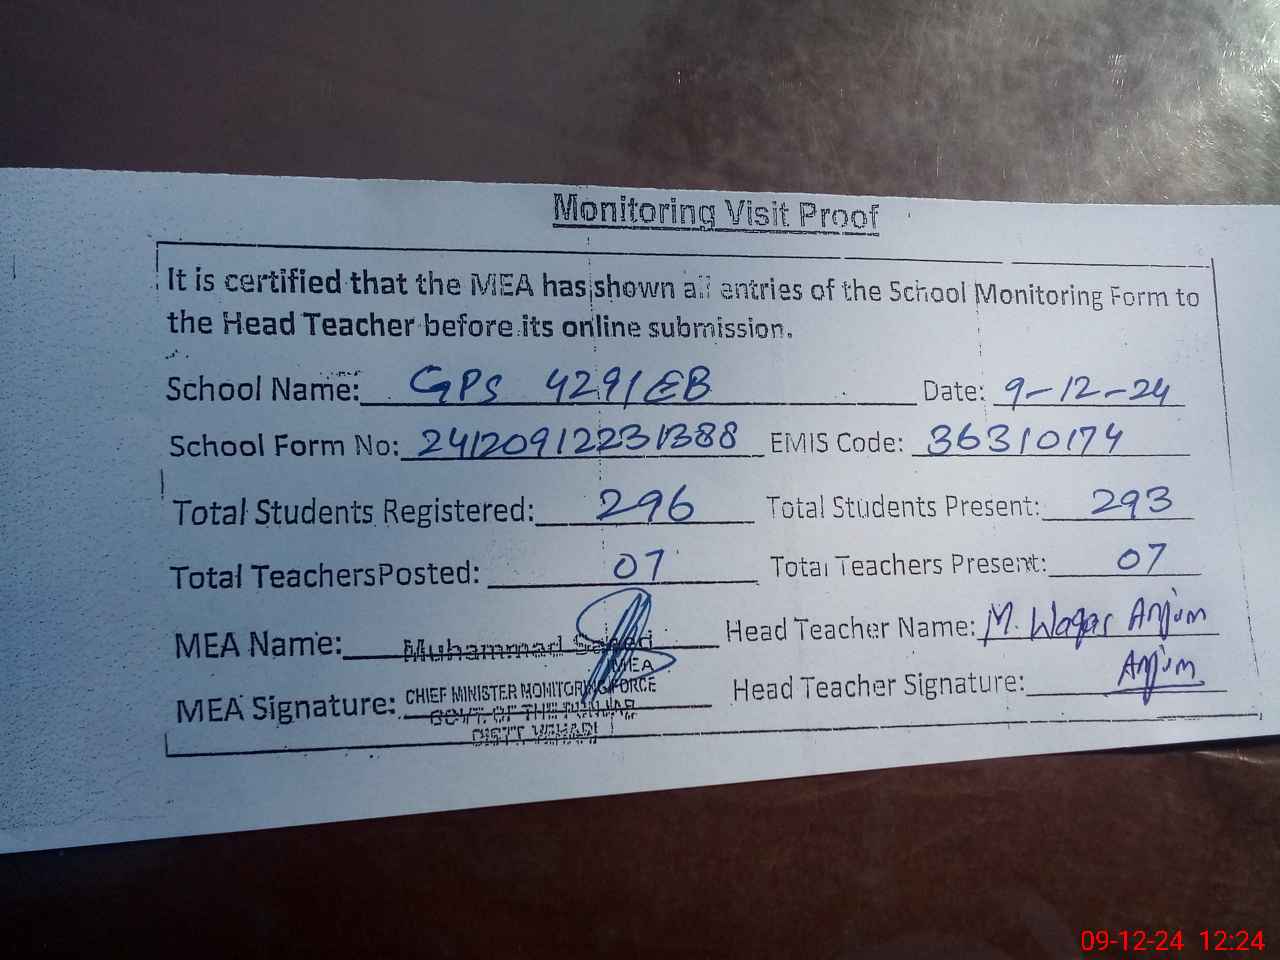 Monitoring Visit Proof
It is certified that the MEA has shown all entries of the School Monitoring Form to
the Head Teacher before its online submission.
School Name: GPS 429/EB Date: 9-12-24
School Form No: 24120912231388 EMIS Code: 36310174
Total Students Registered: 296 Total Students Present: 293
Total TeachersPosted: 07 Total Teachers Present: 07
MEA Name: Muhammad Head Teacher Name: M. Waqar Anjum
MEA
MEA Signature: CHIEF MINISTER MONITORING FORCE Head Teacher Signature: Anjum
GOVT. OF THE PUNJAB
DISTT. VEHARI
09-12-24 12:24